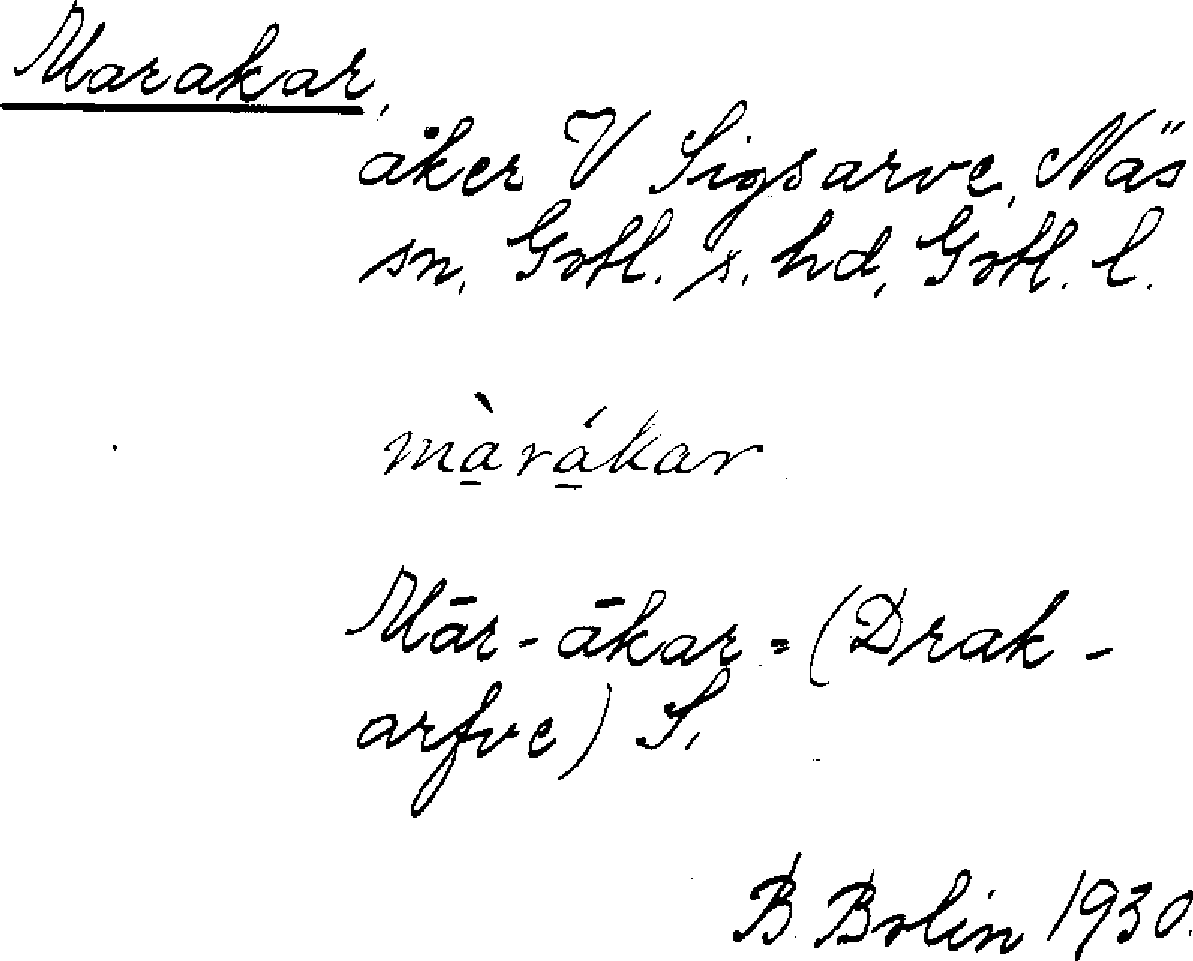 Marakar,
åker V Sigsarve, Näs
sn, Gotl. s. hd, Gotl. l.
mà̱rá̱kar
Mār-ākar = (Drak-
arfve) S.
B. Bolin 1930.